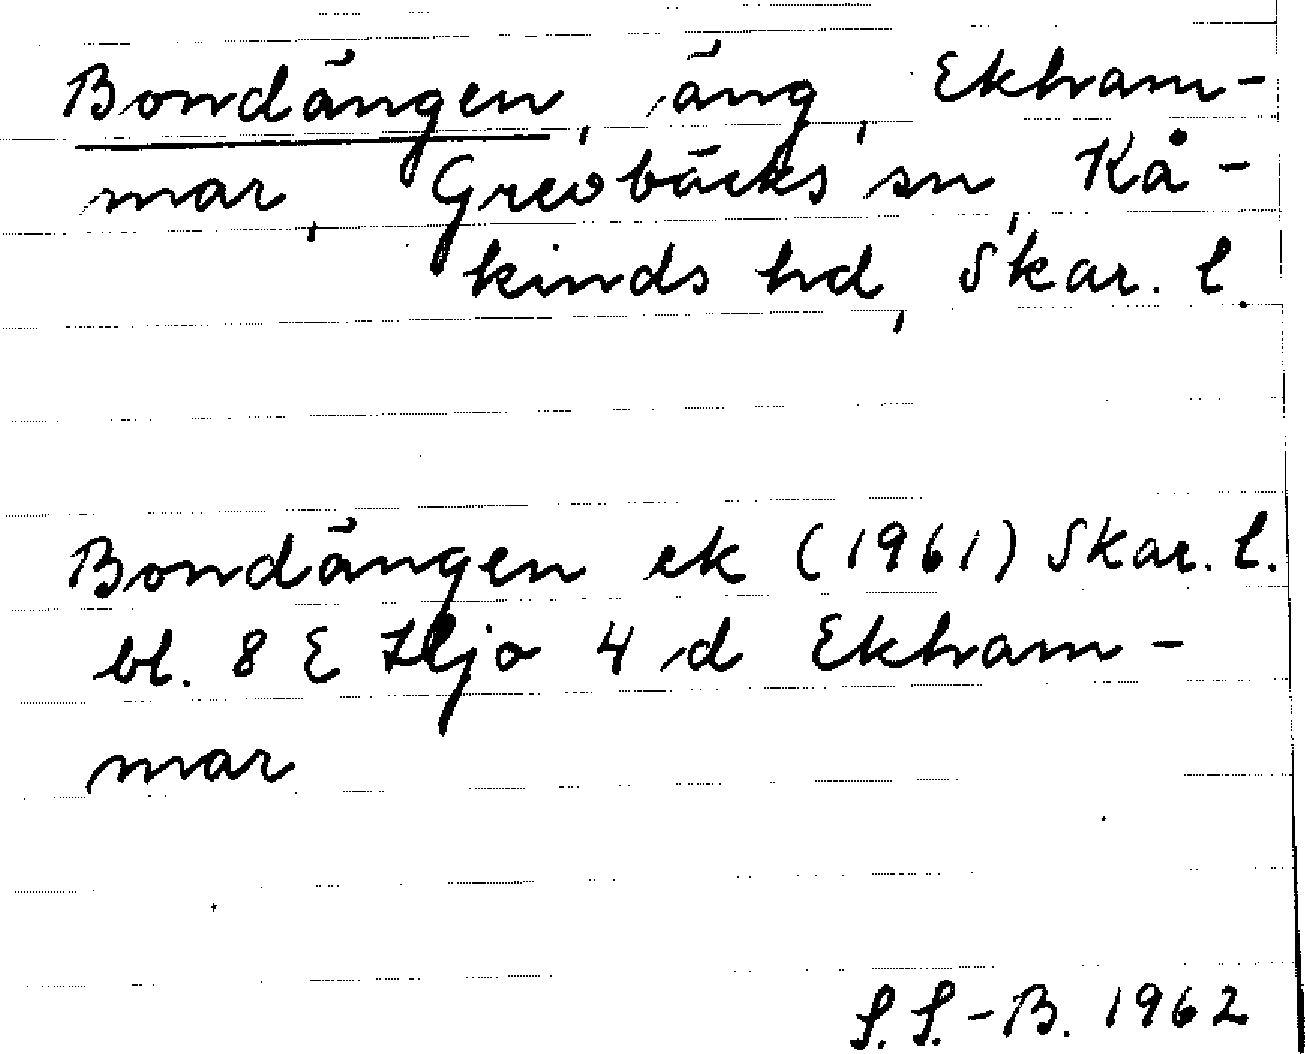 Bondängen, äng, Ekham-
mar, Grevbäcks sn, Kå-
kinds hd, Skar. l.
Bondängen ek (1961) Skar. l.
bl. 8 E Hjo 4 d Ekham-
mar
S. S.-B. 1962